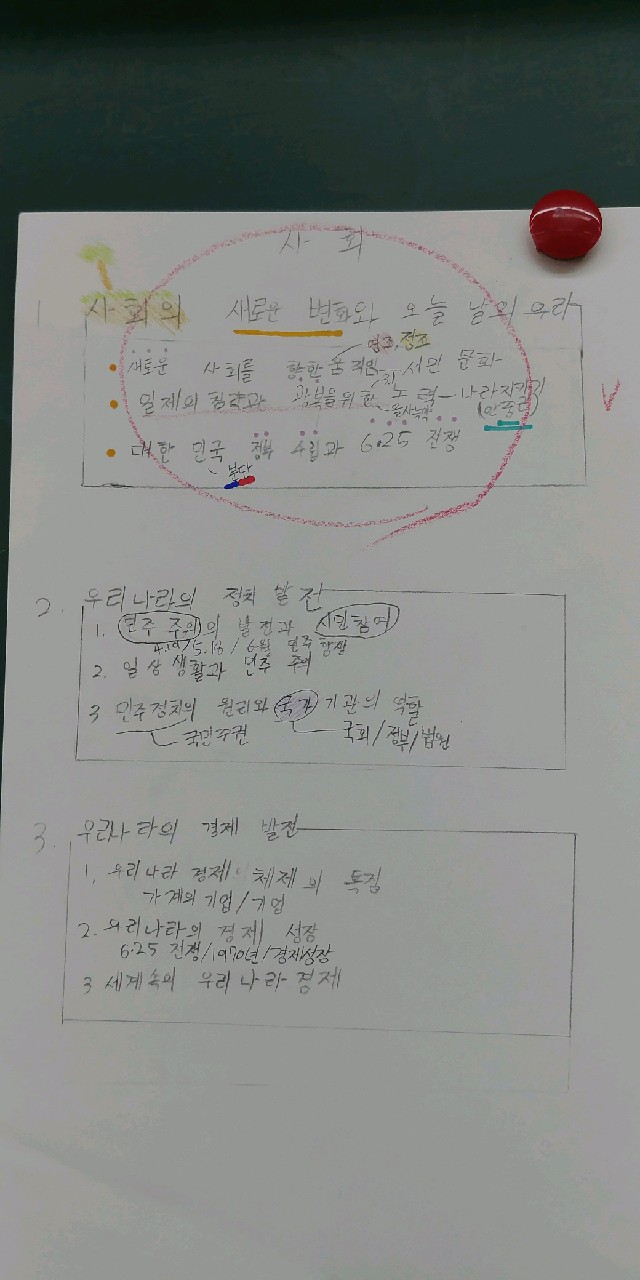 사회
1 사회의 새로운 변화와 오늘 날의 우리
영조, 정조
새로운 사회를 향한 움직임 서민 문화
일제의 침략과 광복을 위한 노력 - 나라 지키기
을사늑약
대한 민국 정부 수립과 6.25 전쟁
분단
2. 우리나라의 정치 발전
1. 민주 주의의 발전과 시민 참여
4.19/5.18/6월 민주 항쟁
2. 일상 생활과 민주 주의
3 민주 정치의 원리와 국가 기관의 역할
국민주권 국회/정부/법원
3. 우리나라의 경제 발전
1. 우리나라 경제 체제의 특징
가계와 기업/기업
2. 우리나라의 경제 성장
6.25 전쟁/1970년/경제성장
3 세계속의 우리 나라 경제